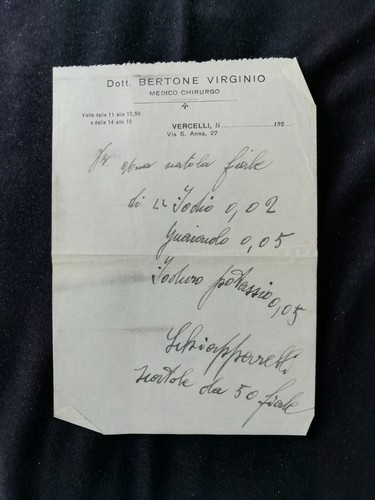 Dott. BERTONE VIRGINIO
MEDICO CHIRURGO
Visite dalle 11 alle 12,30
e dalle 14 alle 16
VERCELLI, li 192
Via S. Anna, 27
una scatola fiale
di Iodio 0,02
Guaiacolo 0,05
Ioduro potassio 0,05
Schiapparelli
scatole da 50 fiale